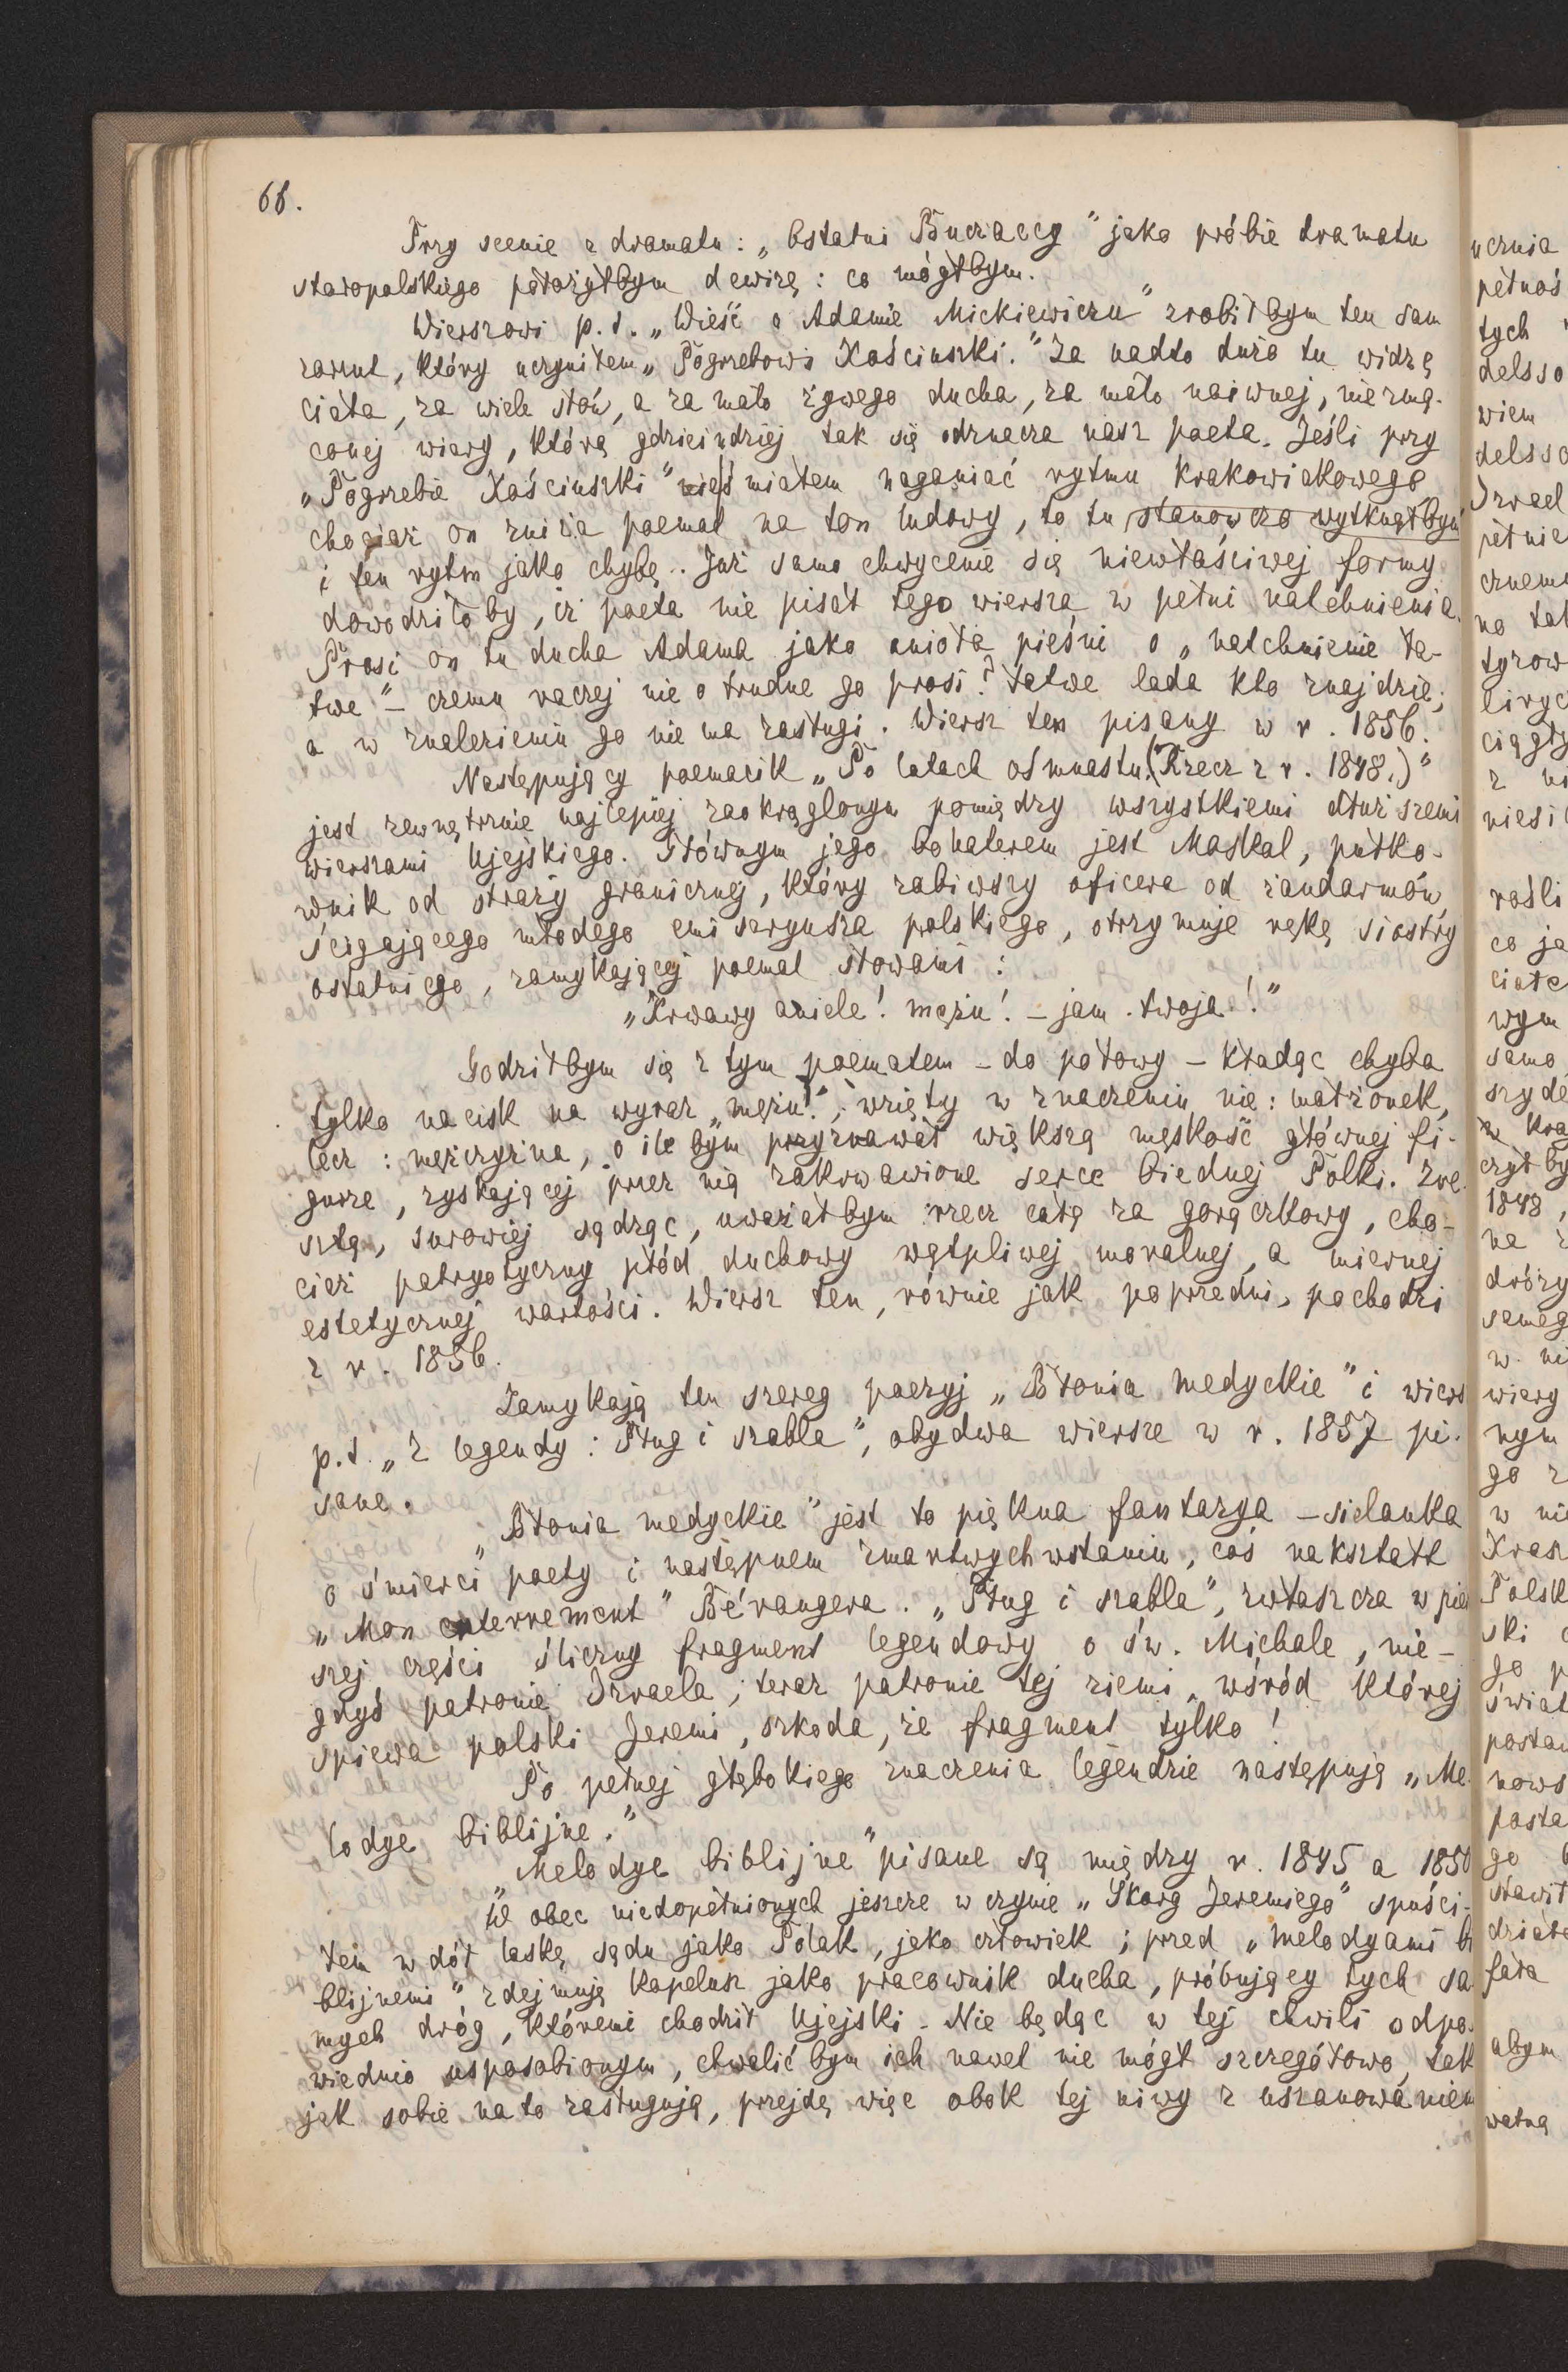 68.
Przy scenie z dramatu: „Ostatni Buczaccy" jako próbie dramatu
staropolskiego położyłbym dewizę: co mógłbym.
Wierszowi p.t. „Wieść o Adamie Mickiewiczu" zrobiłbym ten sam
zarzut, który uczyniłem „Pogrzebowi Kościuszki." Za nadto dużo tu widzę
ciała, za wiele słów, a za mało żywego ducha, za mało naiwnej, niezmą-
conej wiary, którą gdzieindziej tak się odznacza nasz poeta. Jeśli przy
„Pogrzebie Kościuszki" nieśmiałem naganiać rytmu krakowiakowego
chociaż on zniża poemat na ton ludowy, to tu stanowczo wytknąłbym
i ten rytm jako chybę. Już samo chwycenie się niewłaściwej formy
dowodziłoby, iż poeta nie pisał tego wiersza w pełni natchnienia.
Prosi on tu ducha Adama jako anioła pieśni o „natchnienie ła-
twe" – czemu raczej nie o trudne go prosi? Łatwe lada kto znajdzie,
a w znalezieniu go nie ma zasługi. Wiersz ten pisany w r. 1856.
Następujący poemacik „Po latach ośmnastu. (Rzecz z r. 1848.)"
jest zewnętrznie najlepiej zaokrąglonym pomiędzy wszystkiemi dłuższemi
wierszami Ujejskiego. Głównym jego bohaterem jest Moskal, pułko-
wnik od straży granicznej, który zabiwszy oficera od żandarmów,
ścigającego młodego emisaryusza polskiego, otrzymuje rękę siostry
ostatniego, zamykającej poemat słowami:
„Krwawy aniele! mężu! – jam twoja!"
Godziłbym się z tym poematem – do połowy – kładąc chyba
tylko nacisk na wyraz „mężu!", wzięty w znaczeniu nie: małżonek,
lecz: mężczyzna, o ile bym przyznawał większą męskość głównej fi-
gurze, zyskającej przez nią zakrwawione serce biednej Polki. Zre-
sztą, surowiej sądząc, uważałbym rzecz całą za gorączkowy, cho-
ciaż patryotyczny płód duchowy wątpliwej moralnej, a miernej
estetycznej wartości. Wiersz ten, równie jak poprzedni, pochodzi
z r. 1856.
Zamykają ten szereg poezyj „Błonia medyckie" i wiersz
p.t. „Z legendy: Pług i szabla", obydwa wiersze w r. 1857 pi-
sane.
„Błonia medyckie" jest to piękna fantazya – sielanka
o śmierci poety i następnem zmartwychwstaniu, coś nakształt
„Mon enterrement" Bérangera. „Pług i szabla", zwłaszcza w pier
szej części śliczny fragment legendowy o św. Michale, nie-
gdyś patronie Izraela, teraz patronie tej ziemi, wśród której
śpiewa polski Jeremi, szkoda, że fragment tylko!
Po pełnej głębokiego znaczenia legendzie następują „Me-
lodye biblijne."
„Melodye biblijne" pisane są między r. 1845 a 1850
W obec niedopełnionych jeszcze w czynie „Skarg Jeremiego" spuści-
łem w dół laskę sądu jako Polak, jako człowiek; przed „melodyami bi
blijnemi" zdejmuję kapelusz jako pracownik ducha, próbujący tych sa-
mych dróg, któremi chodził Ujejski. Nie będąc w tej chwili odpo-
wiednio usposobionym, chwalić bym ich nawet nie mógł szczegółowo, tak
jak sobie na to zasługują, przejdę więc obok tej niwy z uszanowaniem